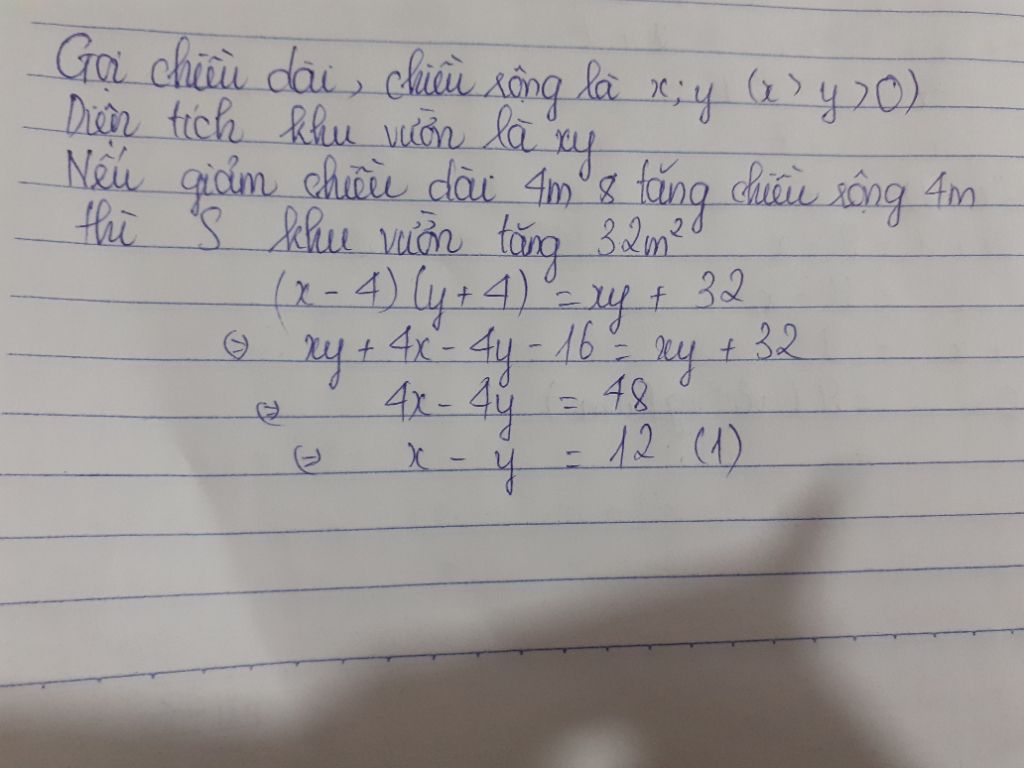 Gọi chiều dài, chiều rộng là x; y (x > y > 0)
Diện tích khu vườn là xy
Nếu giảm chiều dài 4m & tăng chiều rộng 4m
thì S khu vườn tăng 32m²
(x - 4) (y + 4) = xy + 32
⇔ xy + 4x - 4y - 16 = xy + 32
⇔ 4x - 4y = 48
⇔ x - y = 12 (1)